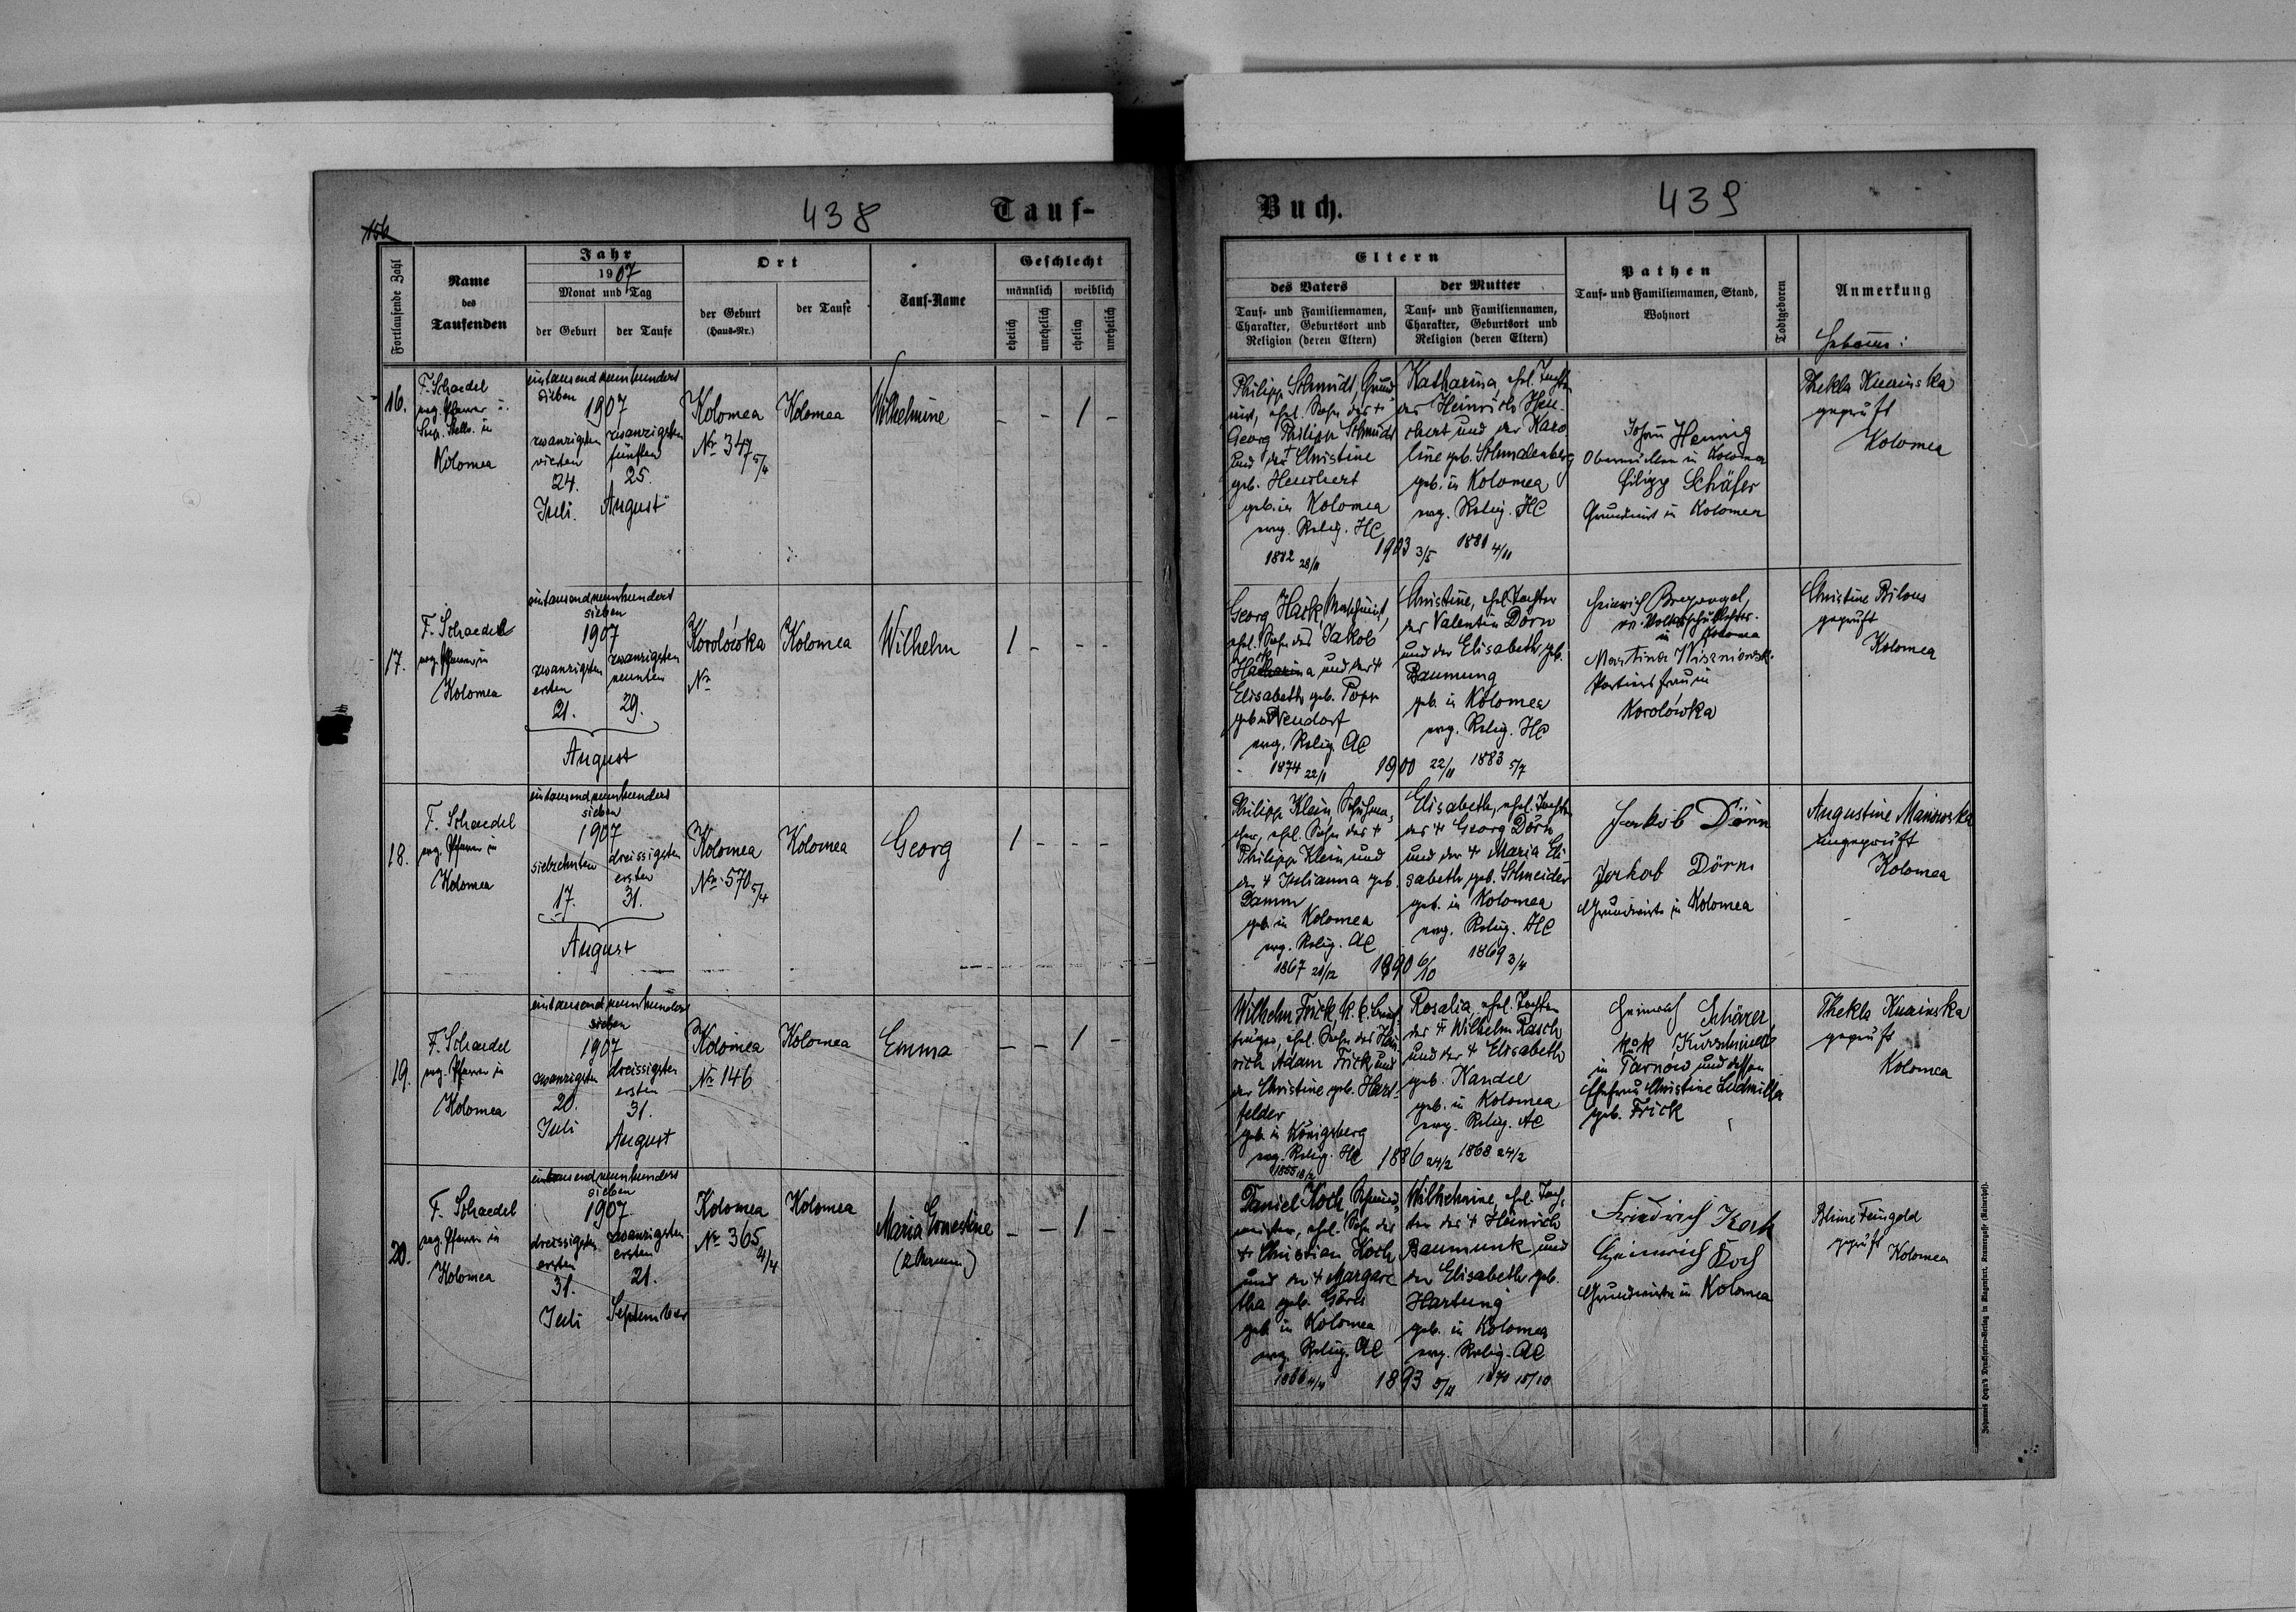 156
438
Tauf-
Fortlaufende Zahl
Name
des
Taufenden
Jahr
1907
Monat und Tag
der Geburt
der Taufe
Ort
der Geburt
(Haus-Nr.)
der Taufe
Tauf-Name
Geschlecht
männlich
weiblich
ehelich
unehelich
ehelich
unehelich
16.
F. Schaedel
evg. Pfarrer u.
Sup. Stellv. in
Kolomea
eintausend neunhundert
sieben
1907
zwanzigsten
vierten
24.
Juli.
zwanzigsten
fünften
25.
August
Kolomea
Nr 347 5/4
Kolomea
Wilhelmine
- - 1 -
17.
F. Schaedel
evg. Pfarrer in
Kolomea
eintausend neunhundert
sieben
1907
zwanzigsten
ersten
21.
zwanzigsten
neunten
29.
August
Korolówka
Nr
Kolomea
Wilhelm
1 - - -
18.
F. Schaedel
evg. Pfarrer in
Kolomea
eintausend neunhundert
sieben
1907
siebzehnten
17.
dreissigsten
ersten
31.
August
Kolomea
Nr. 570 5/4
Kolomea
Georg
1 - - -
19.
F. Schaedel
evg. Pfarrer in
Kolomea
eintausend neunhundert
sieben
1907
zwanzigsten
20.
Juli
dreissigsten
ersten
31.
August
Kolomea
Nr 146
Kolomea
Emma
- - 1 -
20.
F. Schaedel
evg. Pfarrer in
Kolomea
eintausend neunhundert
sieben
1907
dreissigsten
ersten
31.
Juli
zwanzigsten
ersten
21.
September
Kolomea
Nr 365 4/4
Kolomea
Maria Ernestine
- - 1 -
Buch.
439
Eltern
des Vaters
Tauf- und Familiennamen,
Charakter, Geburtsort und
Religion (deren Eltern)
der Mutter
Tauf- und Familiennamen,
Charakter, Geburtsort und
Religion (deren Eltern)
Pathen
Tauf- und Familiennamen, Stand,
Wohnort
Todtgeboren
Anmerkung
Hebamme:
Philipp Schmidt, Grund
wirt, ehel. Sohn des †
Georg Philipp Schmidt
und der † Christine
geb. Heuchert
geb. in Kolomea
evg. Relig. HC
28/11
1903 3/5
Katharina, ehel. Tochter
des Heinrich Heu-
chert und der Karo
line geb. Schmalenberg
geb. in Kolomea
evg. Relig. HC
1881 4/11
Johann Hennig
in Kolomea
Filipp Schäfer
Grundwirt in Kolomea
Thekla Kurinska
geprüft
Kolomea
Georg Hark, Maschinist,
ehel. Sohn des Jakob
Hark und der †
Elisabeth geb. Popp
geb. in Neudorf
evg. Relig. AC
1874 22/1
1900 22/11
Christine, ehel. Tochter
des Valentin Dörn
und der Elisabeth geb.
Baumung
geb. in Kolomea
evg. Relig. HC
1883 5/7
Heinrich
in Kolomea
Martina Wiszniowsk.
Portiersfrau in
Korolówka
Christine Bilous
geprüft
Kolomea
Philipp Klein, Schuhma-
cher, ehel. Sohn des †
Philipp Klein und
der † Julianna geb.
Damm
geb. in Kolomea
evg. Relig. AC
1867 21/12
1890 6/10
Elisabeth, ehel. Tochter
des † Georg Dörn
und der † Maria Eli-
sabeth geb. Schneider
geb. in Kolomea
evg. Relig. HC
1869 3/4
Jakob Dörn
Jakob Dörn
Grundwirte in Kolomea
Augustine Manowska
ungeprüft
Kolomea
Wilhelm Frick, k. k. Brief-
träger, ehel. Sohn des Hein
rich Adam Frick und
der Christine geb. Harf-
felder
geb. in Königsberg
evg. Relig. HC
1886 24/2
Rosalia, ehel. Tochter
des † Wilhelm Rasch
und der † Elisabeth
geb. Kandel
geb. in Kolomea
evg. Relig. AC
1868 24/2
Heinrich Schärer
k u k Kurschmied
in Tarnow und dessen
Ehefrau Christine Ludmilla
geb. Frick
Thekla Kurinska
geprüft
Kolomea
Daniel Koch, Schmied-
meister, ehel. Sohn des
† Christian Koch
und der † Margare
tha geb. Göres
geb. in Kolomea
evg. Relig. AC
1893 5/11
Wilhelmine, ehel. Toch-
ter des † Heinrich
Baumunk und
der Elisabeth geb.
Hartung
geb. in Kolomea
evg. Relig. AC
1870 15/10
Friedrich Koch
Heinrich Koch
Grundwirte in Kolomea
Blime Feingold
geprüft
Kolomea